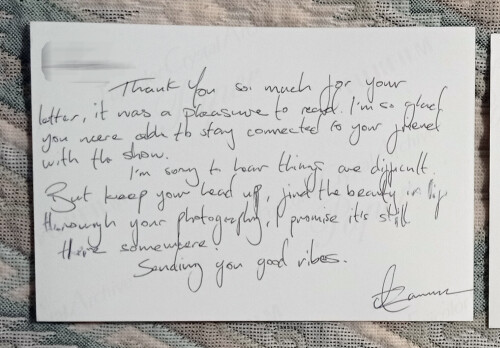 Thank You so much for your
letter, it was a pleasure to read. I'm so glad
you were able to stay connected to your friend
with the show.
I'm sorry to hear things are difficult.
But keep your head up, find the beauty in life
through your photography, I promise it's still
there somewhere.
Sending you good vibes.